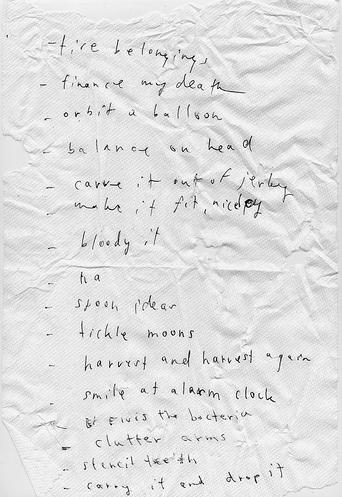 - tire belongings
- finance my death
- orbit a balloon
- balance on head
- carve it out of jerky
- make it fit, nicely
- bloody it
- ha
- spoon ideas
- tickle moons
- harvest and harvest again
- smile at alarm clock
- Elvis the bacteria
- clutter arms
- stencil teeth
- carry it and drop it